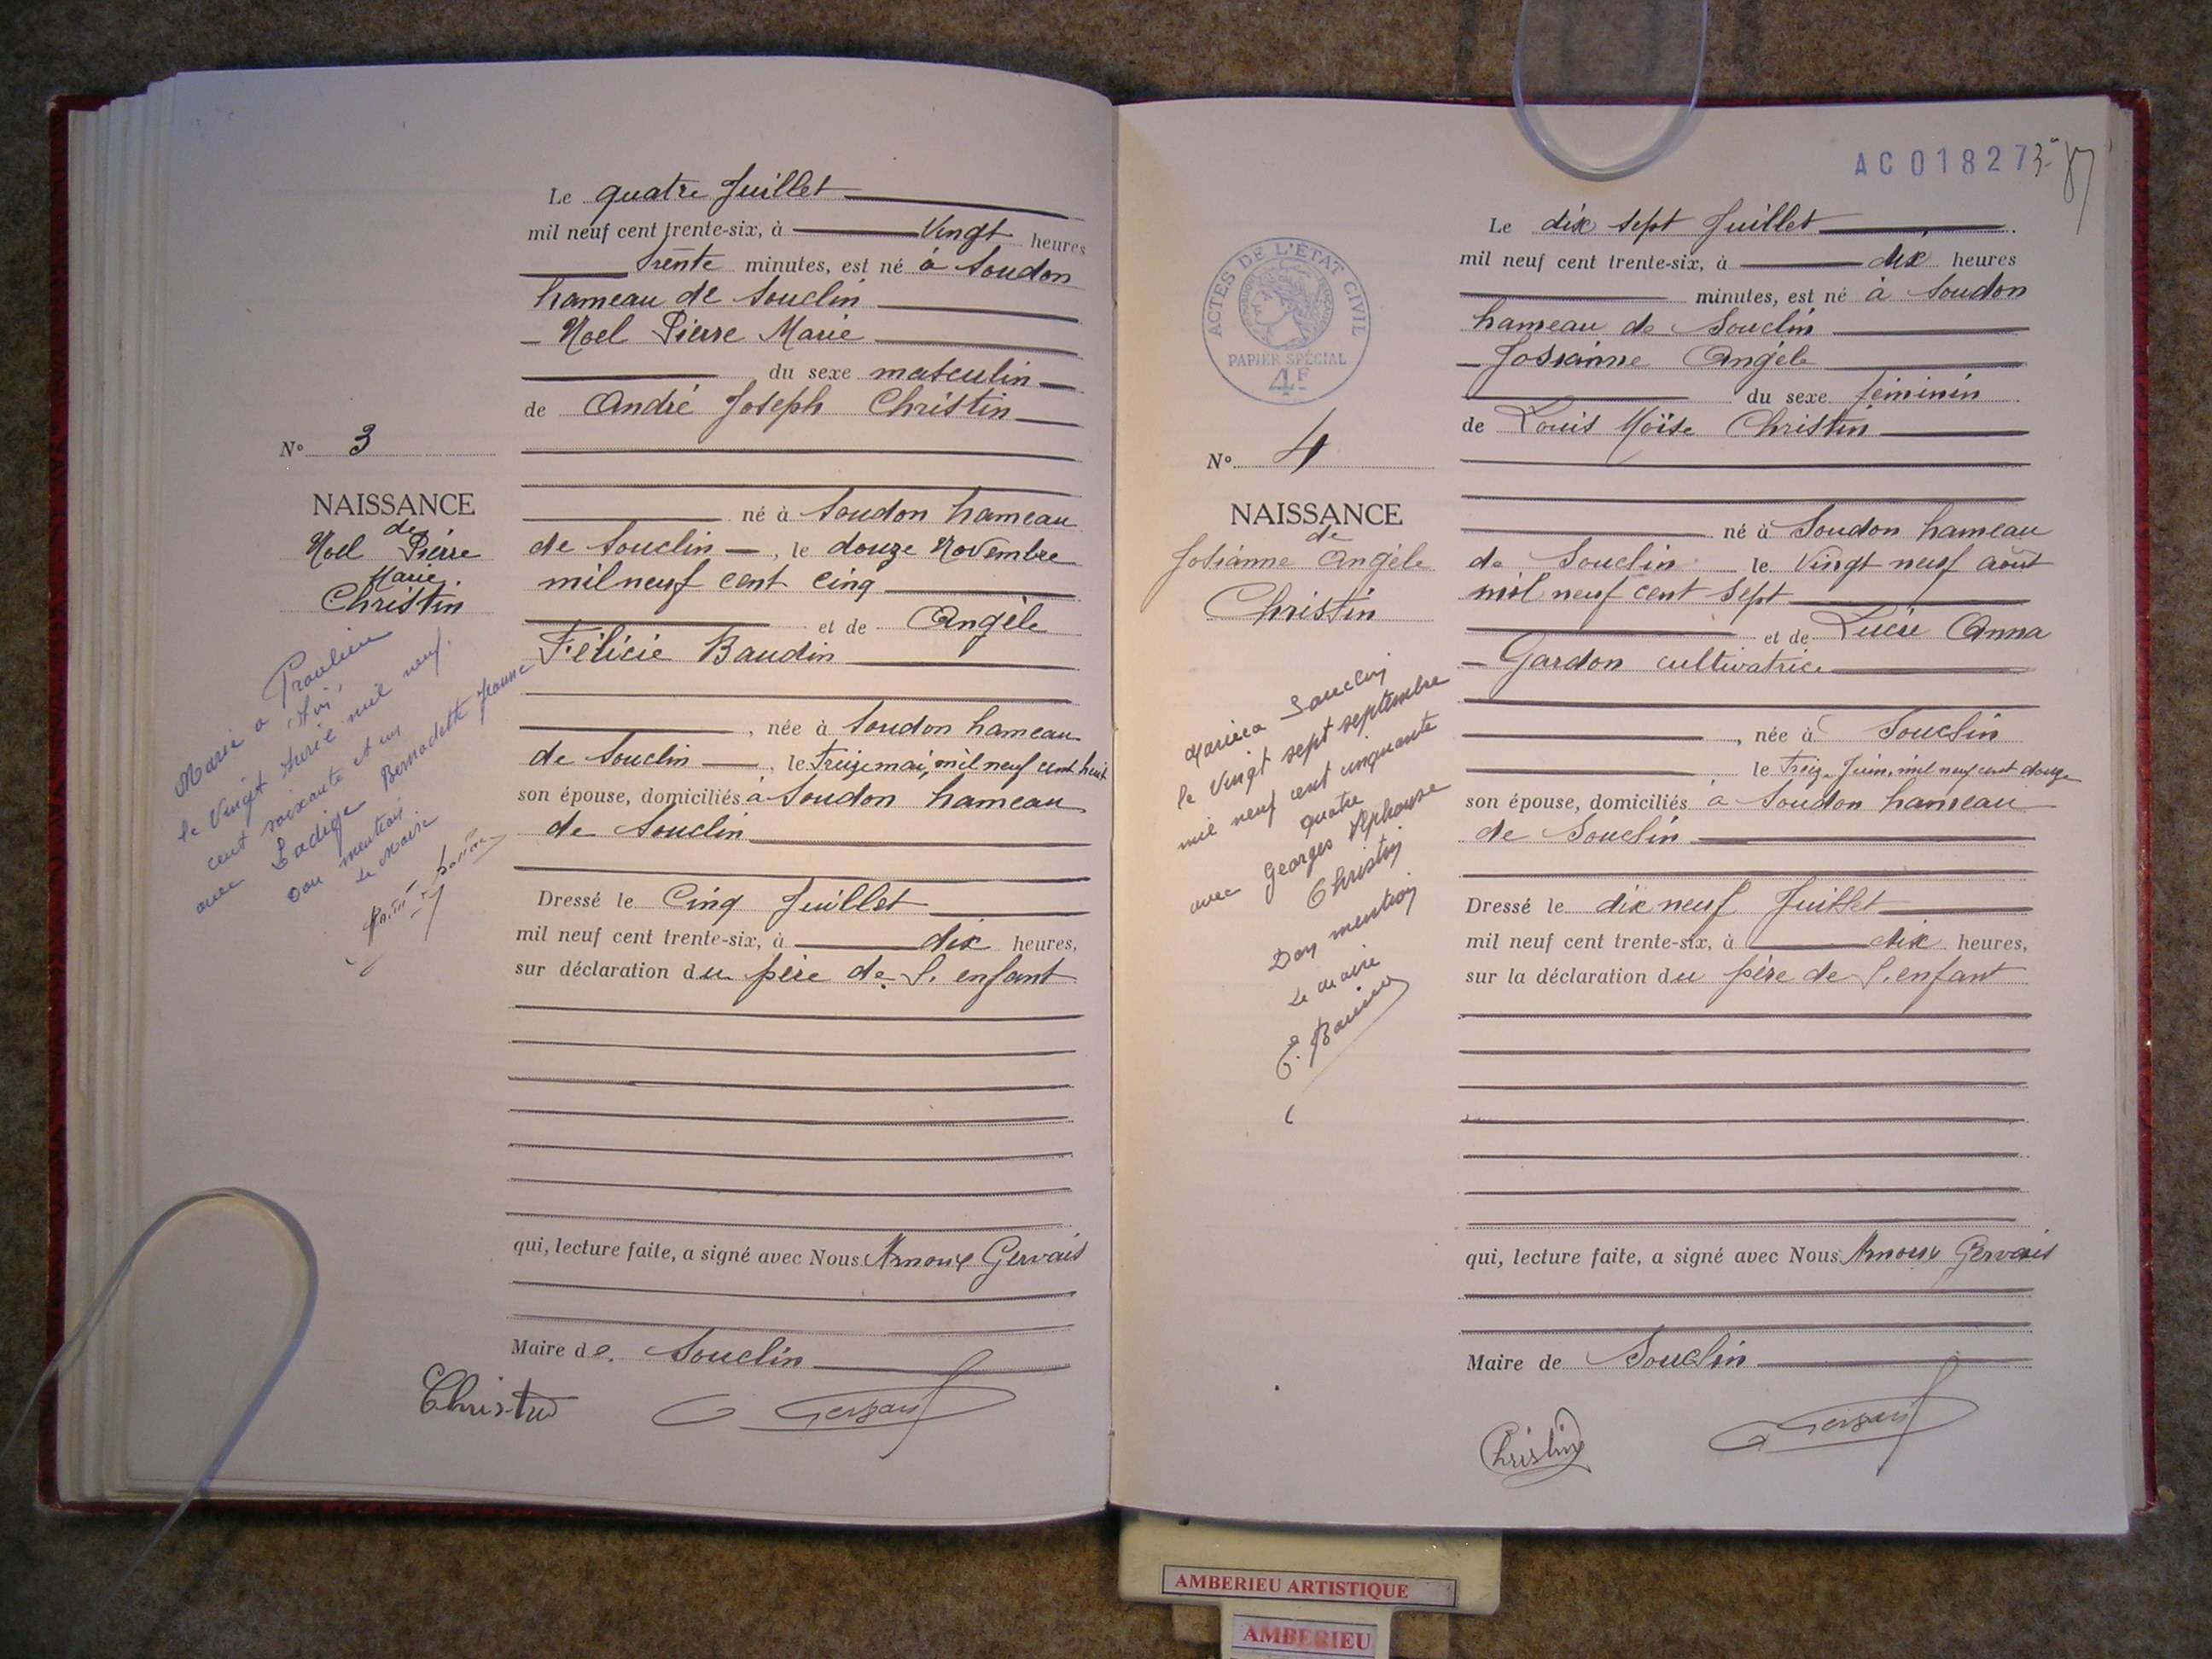 Le quatre Juillet
mil neuf cent trente-six, à Vingt heures
Trente minutes, est né à Soudon
hameau de Souclin
Noel Pierre Marie
du sexe masculin
de André Joseph Christin
N° 3
NAISSANCE
de
Noel Pierre
Marie
Christin
né à Soudon hameau
de Souclin, le douze Novembre
mil neuf cent cinq
et de Angèle
Félicie Baudin
, née à Soudon hameau
de Souclin, le treize mai, mil neuf cent huit
son épouse, domiciliés à Soudon hameau
de Souclin
Marié a
le Vingt Avril mil neuf
cent soixante et un
avec Ladige Bernadette Jeanne
Don mention
Le Maire
Dressé le Cinq Juillet
mil neuf cent trente-six, à dix heures,
sur déclaration du père de l'enfant
qui, lecture faite, a signé avec Nous Arnoux Gervais
Maire de Souclin
Christin
Gervais
AC018273
Le dix sept Juillet
mil neuf cent trente-six, à dix heures
minutes, est né à Soudon
hameau de Souclin
Josianne Angèle
du sexe féminin
de Louis Moïse Christin
ACTES DE L'ETAT CIVIL
PAPIER SPÉCIAL
4F
N° 4
NAISSANCE
de
Josianne Angèle
Christin
né à Soudon hameau
de Souclin le Vingt neuf août
mil neuf cent sept
et de Lucie Anna
Gardon cultivatrice
, née à Souclin
le treize Juin, mil neuf cent douze
son épouse, domiciliés à Soudon hameau
de Souclin
Mariée a Souclin
le Vingt sept septembre
mil neuf cent cinquante
quatre
avec Georges Alphonse
Christin
Don mention
Le maire
Dressé le dix neuf Juillet
mil neuf cent trente-six, à dix heures,
sur la déclaration du père de l'enfant
qui, lecture faite, a signé avec Nous Arnoux Gervais
Maire de Souclin
Christin
Gervais
AMBERIEU ARTISTIQUE
AMBERIEU